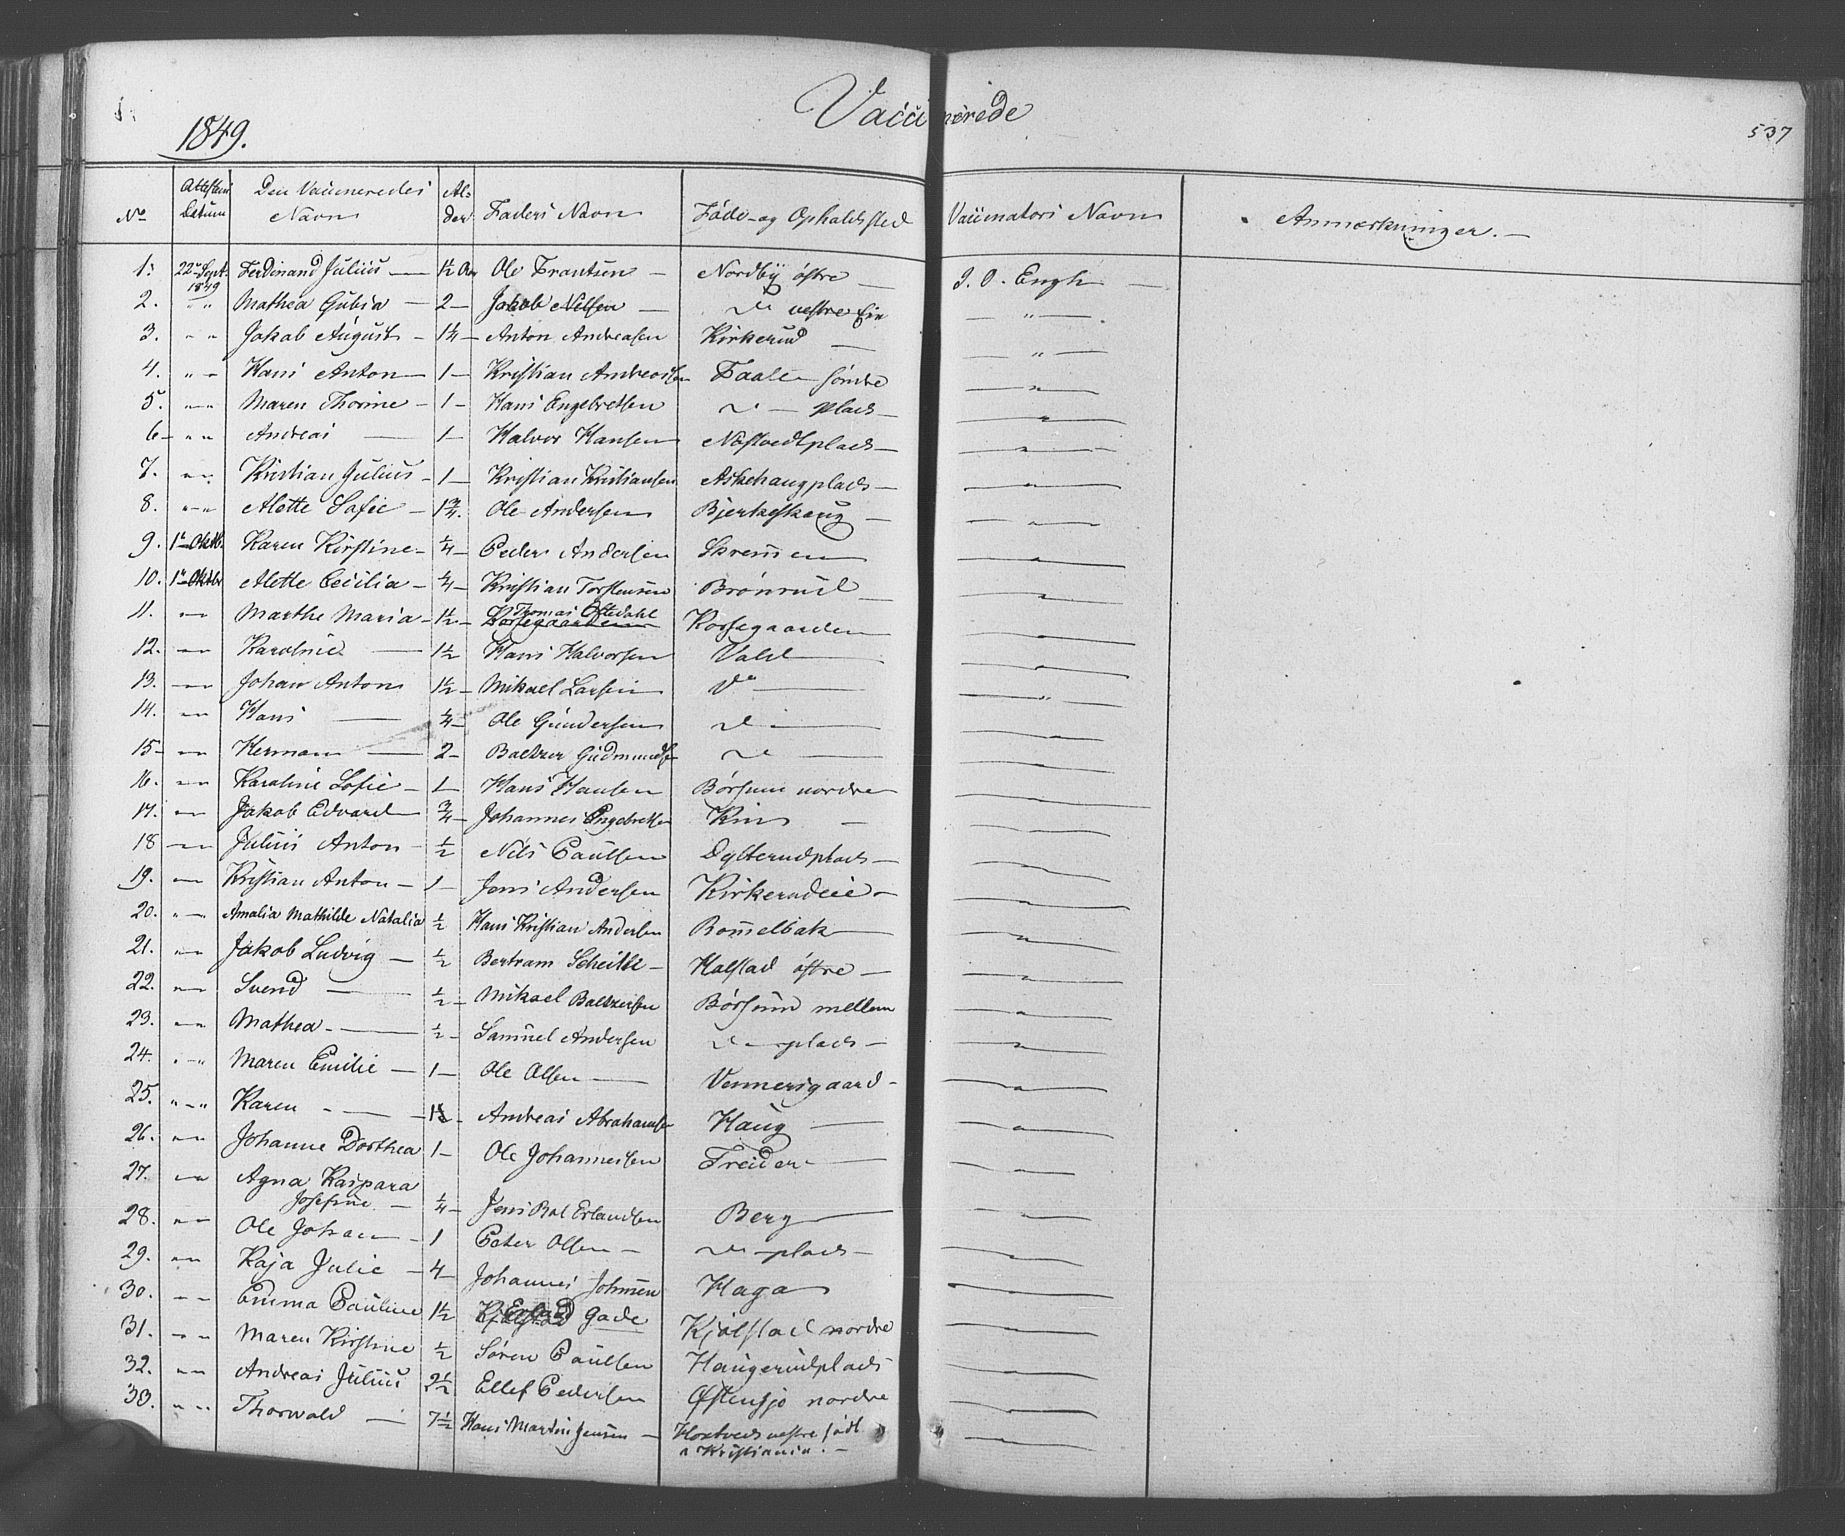 Vaccinerede
1849.
537
No Attestens Datum Den Vaccineredes Navn Alder Faders Navn Føde- og Opholdssted Vaccinators Navn Anmærkninger.
1. 22 Sept. 1849 Ferdinand Julius 1½ Aar Ole Frantsen Nordby østre J. O. Engh
2. " " Mathea Gubia 2 Jakob Nilsen Do vestre Eie "
3. " " Jakob August 1¼ Anton Andreasen Kirkerud "
4. " " Hans Anton 1 Kristian Andreassen Faale søndre "
5. " " Maren Thorine 1 Hans Engebretsen Do plads "
6 " " Andreas 1 Halvor Hansen Nøstvedtplads "
7. " " Kristian Julius 1 Kristian Kristiansen Askehaugplads "
8. " " Alette Sofie 1¾ Ole Andersen Bjerkeskaug "
9. 1 Oktb. Karen Kirstine ¼ Peder Andersen Skremmen "
10. 1 Oktbr Alette Cecilia ¾ Kristian Torstensen Brønnul "
11. " Marthe Maria 1½ Thomas Oftedahl Korsegaarden "
12. " Karoline 1½ Hans Halvorsen Vald "
13. " Johan Anton 1½ Mikael Larsen Do "
14. " Hans ¼ Ole Gundersen Do "
15 " Herman 2 Baltzer Gudmundsen Do "
16. " Karoline Sofie 1 Hans Hansen Børsum nordre "
17. " Jakob Edvard ¾ Johannes Engebretsen Kin "
18 " Julius Anton ½ Nils Paulsen Dylterudplads "
19. " Kristian Anton 1 Jens Andersen Kirkerudeie "
20. " Amalia Mathilde Natalia ½ Hans Kristian Andersen Rommelbak "
21. " Jakob Ludvig ½ Bertram Scheitle Halstad østre "
22. " Svend ½ Mikael Baltzersen Børsum mellem "
23. " Mathea ½ Samuel Andersen Do plads "
24. " Maren Emilie 1 Ole Olsen Vennersgaard "
25. " Karen 1½ Andreas Abrahamsen Haug "
26. " Johanne Dorthea 1 Ole Johannessen Freider "
27. " Agna Kaspara Josefine ¼ Jens Bal Erlandsen Berg "
28. " Ole Johan 1 Peter Olsen Do plads "
29. " Kaja Julie 4 Johannes Johnsen Haga "
30. " Emma Pauline 1½ Gade Kjølstad nordre "
31. " Maren Kirstine ½ Søren Paulsen Haugerudplads "
32. " Andreas Julius 2½ Ellef Pedersen Østensjo nordre "
33. " Thorvald 7½ Hans Martin Jensen Hoxtved vestre født
i Kristiania.